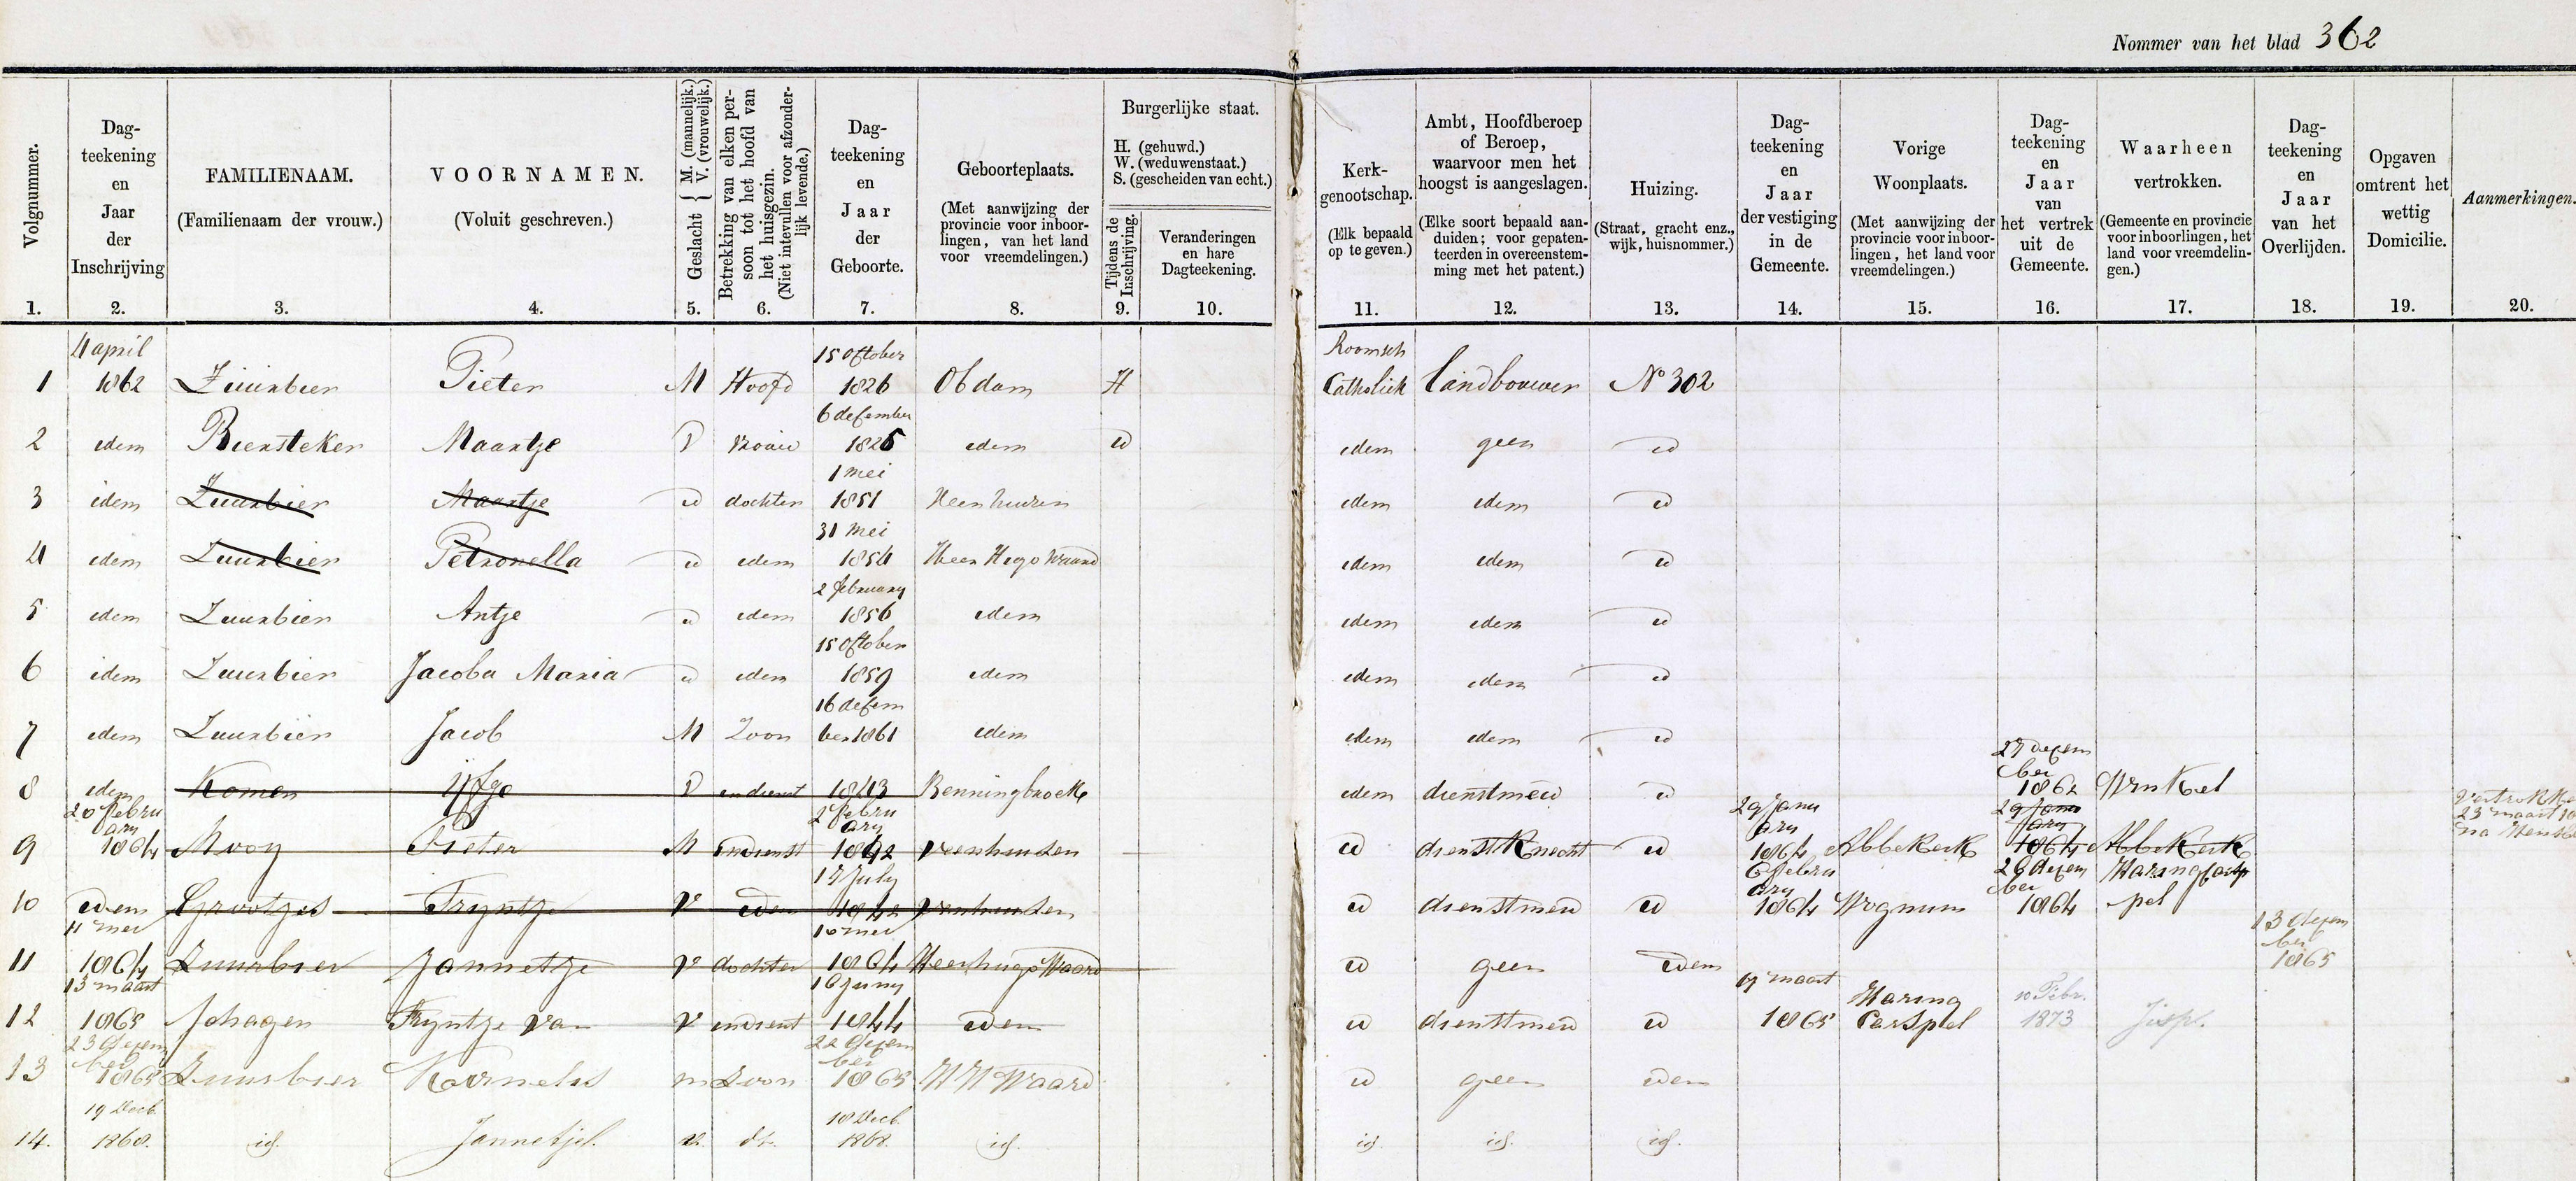 Nommer van het blad 362
Volgnummer. 1.
Dag-
teekening
en
Jaar
der
Inschrijving
2.
FAMILIENAAM.
(Familienaam der vrouw.)
3.
VOORNAMEN.
(Voluit geschreven.)
4.
Geslacht { M. (mannelijk.) V. (vrouwelijk.)
5.
Betrekking van elken per-
soon tot het hoofd van
het huisgezin.
(Niet intevullen voor afzonder-
lijk levende.)
6.
Dag-
teekening
en
Jaar
der
Geboorte.
7.
Geboorteplaats.
(Met aanwijzing der
provincie voor inboor-
lingen, van het land
voor vreemdelingen.)
8.
Burgerlijke staat.
H. (gehuwd.)
W. (weduwenstaat.)
S. (gescheiden van echt.)
Tijdens de
Inschrijving.
9.
Veranderingen
en hare
Dagteekening.
10.
Kerk-
genootschap.
(Elk bepaald
op te geven.)
11.
Ambt, Hoofdberoep
of Beroep,
waarvoor men het
hoogst is aangeslagen.
(Elke soort bepaald aan-
duiden; voor gepaten-
teerden in overeenstem-
ming met het patent.)
12.
Huizing.
(Straat, gracht enz.,
wijk, huisnommer.)
13.
Dag-
teekening
en
Jaar
der vestiging
in de
Gemeente.
14.
Vorige
Woonplaats.
(Met aanwijzing der
provincie voor inboor-
lingen, het land voor
vreemdelingen.)
15.
Dag-
teekening
en
Jaar
van
het vertrek
uit de
Gemeente.
16.
Waarheen
vertrokken.
(Gemeente en provincie
voor inboorlingen, het
land voor vreemdelin-
gen.)
17.
Dag-
teekening
en
Jaar
van het
Overlijden.
18.
Opgaven
omtrent het
wettig
Domicilie.
19.
Aanmerkingen.
20.
4 april 15 October Roomsch
1 1862 Zuurbier Pieter M Hoofd 1826 Obdam H Catholiek landbouwer No 302
6 december
2 idem Biersteker Maartje V vrouw 1825 idem id idem geen id
1 mei
3 idem Zuurbier Maartje id dochter 1851 Veenhuizen idem idem id
31 mei
4 idem Zuurbier Petronella id idem 1854 Heer Hugo Waard idem idem id
2 february
5 idem Zuurbier Antje id idem 1856 idem idem idem id
15 October
6 idem Zuurbier Jacoba Maria id idem 1859 idem idem idem id
16 decem
7 idem Zuurbier Jacob M Zoon ber 1861 idem idem idem id
27 decem
ber
8 idem Komen V indienst 1843 Benningbroek idem dienstmeid id 1862 Winkel
20 februari 2 februari 29 januari 29 januari
9 1864 Mooy Pieter M indienst 1842 Veenhuizen id dienstknecht id 1864 Abbekerk 1864 Abbekerk
17 july 6 februari 28 decem ber Haringcarspel
10 idem Grootjes Tryntje V idem 1842 Veenhuizen id dienstmeid id 1864 Wognum 1864
11 mei 10 mei 13 decem ber
11 1864 Zuurbier Jannetje V dochter 1864 Heerhugo Waard id geen idem 1865
13 maart 16 juny 19 maart Haring 10 Febr.
12 1865 Schagen Tryntje van V indienst 1844 idem id dienstmeid id 1865 Carspel 1873 Jisp.
23 decem ber 22 decem ber
13 1865 Zuurbier Kornelis m Zoon 1865 H H Waard id geen idem
19 Decb 18 Decb
14. 1868. id. Jannetje. v. dr. 1868. id. id. id. id.